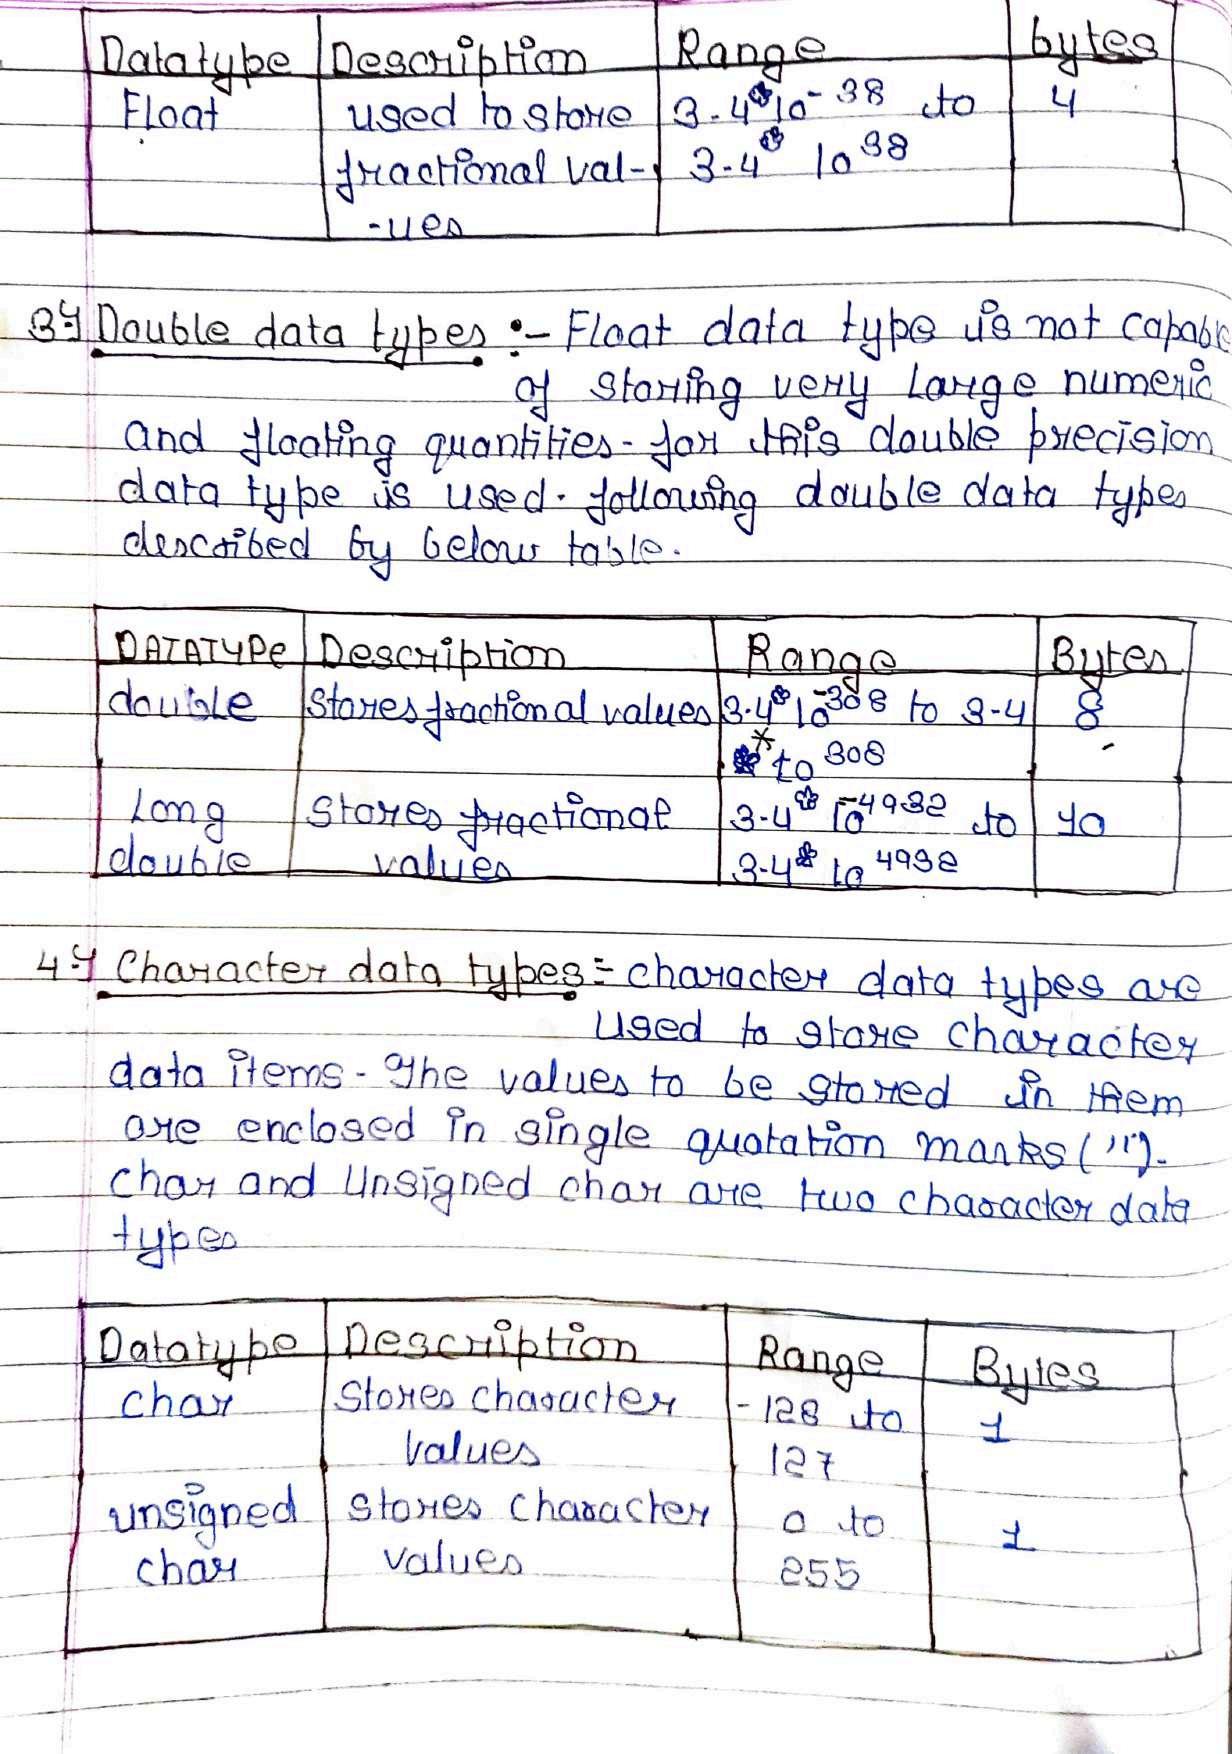 Datatype Description Range bytes
Float used to store 3.4*10^-38 to 4
fractional val- 3.4* 10^38
-ues
3) Double data types :- Float data type is not capable
of storing very large numeric
and floating quantities. for this double precision
data type is used. following double data types
described by below table.
DATATYPE Description Range Bytes
double Stores fractional values 3.4*10^-308 to 3.4 8
* to^308
Long Stores fractional 3.4* 10^-4932 to 10
double values 3.4* 10^4932
4) Character data types = character data types are
used to store character
data items. The values to be stored in them
are enclosed in single quotation marks ('').
char and Unsigned char are two character data
types
Datatype Description Range Bytes
char Stores character -128 to 1
values 127
unsigned stores character 0 to 1
char values 255